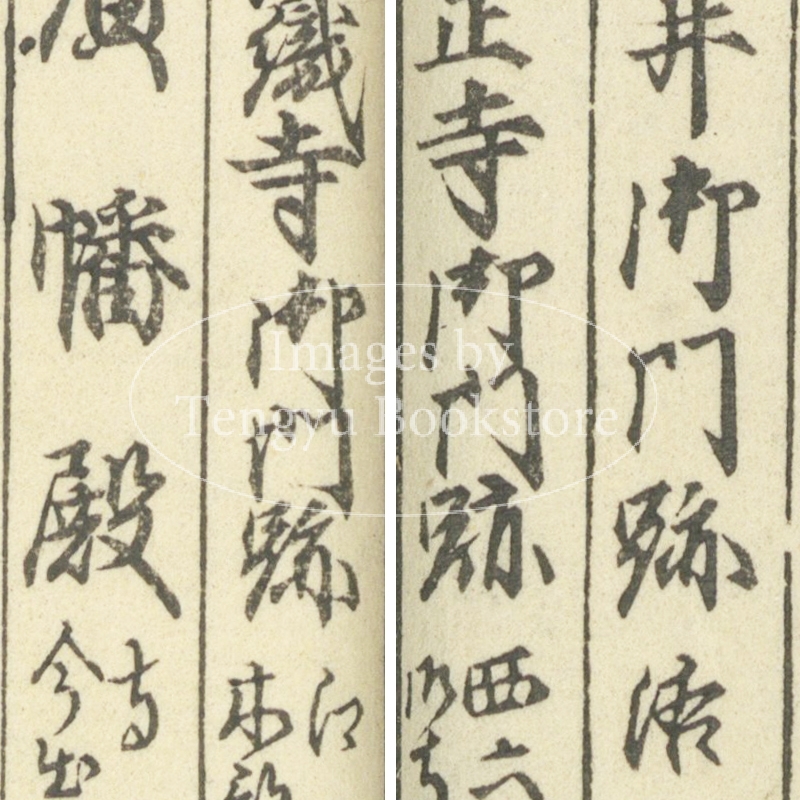 井御門跡 洛
正寺御門跡 西六
織寺御門跡 江
木部
廣幡殿 寺
今出
Images by
Tengyu Bookstore